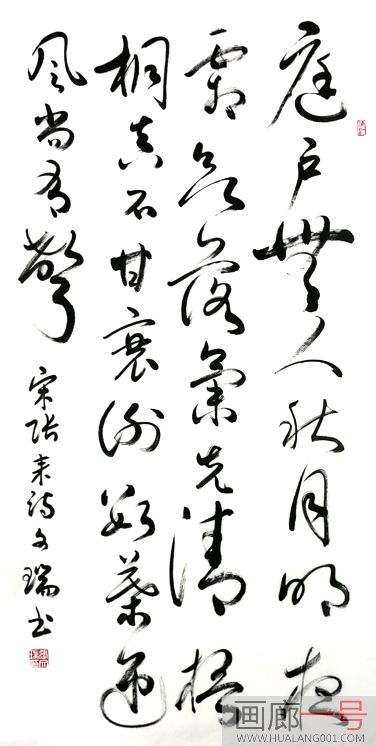 庭戶無人秋月明夜
霜欲落氣先清梧
桐真不甘衰謝數葉迎
風尚有聲
宋張耒詩文瑞書
画廊一号
WWW.HUALANG001.COM